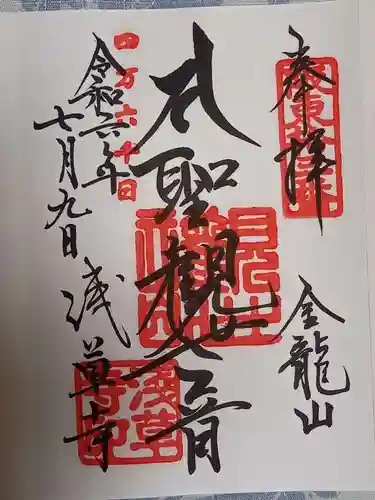 奉拝
金龍山
聖観世音
四万六千日
令和六年
七月九日
浅草寺
浅草
寺印